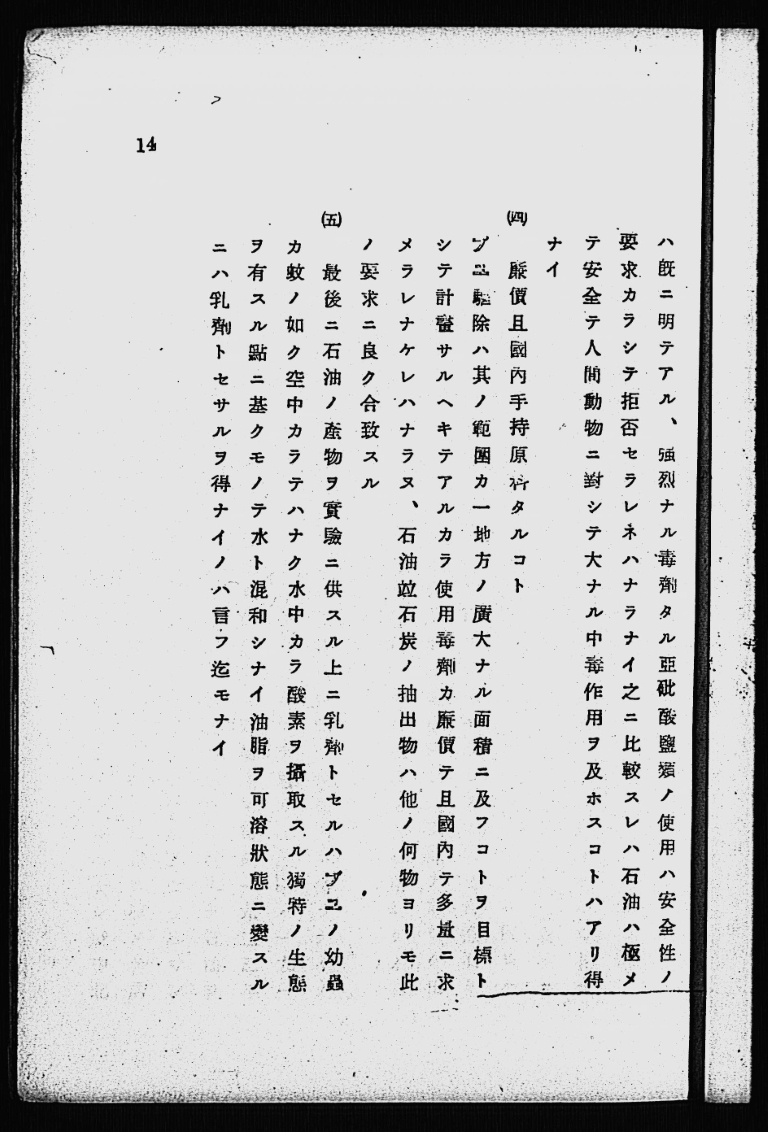 ハ旣ニ明テアル、强烈ナル毒劑タル亞砒酸鹽類ノ使用ハ安全性ノ
要求カラシテ拒否セラレネハナラナイ之ニ比較スレハ石油ハ極メ
テ安全テ人間動物ニ對シテ大ナル中毒作用ヲ及ホスコトハアリ得
ナイ
㈣ 廉價且國內手持原料タルコト
ブユ驅除ハ其ノ範圍カ一地方ノ廣大ナル面積ニ及フコトヲ目標ト
シテ計畫サルヘキテアルカラ使用毒劑カ廉價テ且國內テ多量ニ求
メラレナケレハナラヌ、石油竝石炭ノ抽出物ハ他ノ何物ヨリモ此
ノ要求ニ良ク合致スル
㈤ 最後ニ石油ノ產物ヲ實驗ニ供スル上ニ乳劑トセルハブユノ幼蟲
カ蚊ノ如ク空中カラテハナク水中カラ酸素ヲ攝取スル獨特ノ生態
ヲ有スル點ニ基クモノテ水ト混和シナイ油脂ヲ可溶狀態ニ變スル
ニハ乳劑トセサルヲ得ナイノハ言フ迄モナイ
14